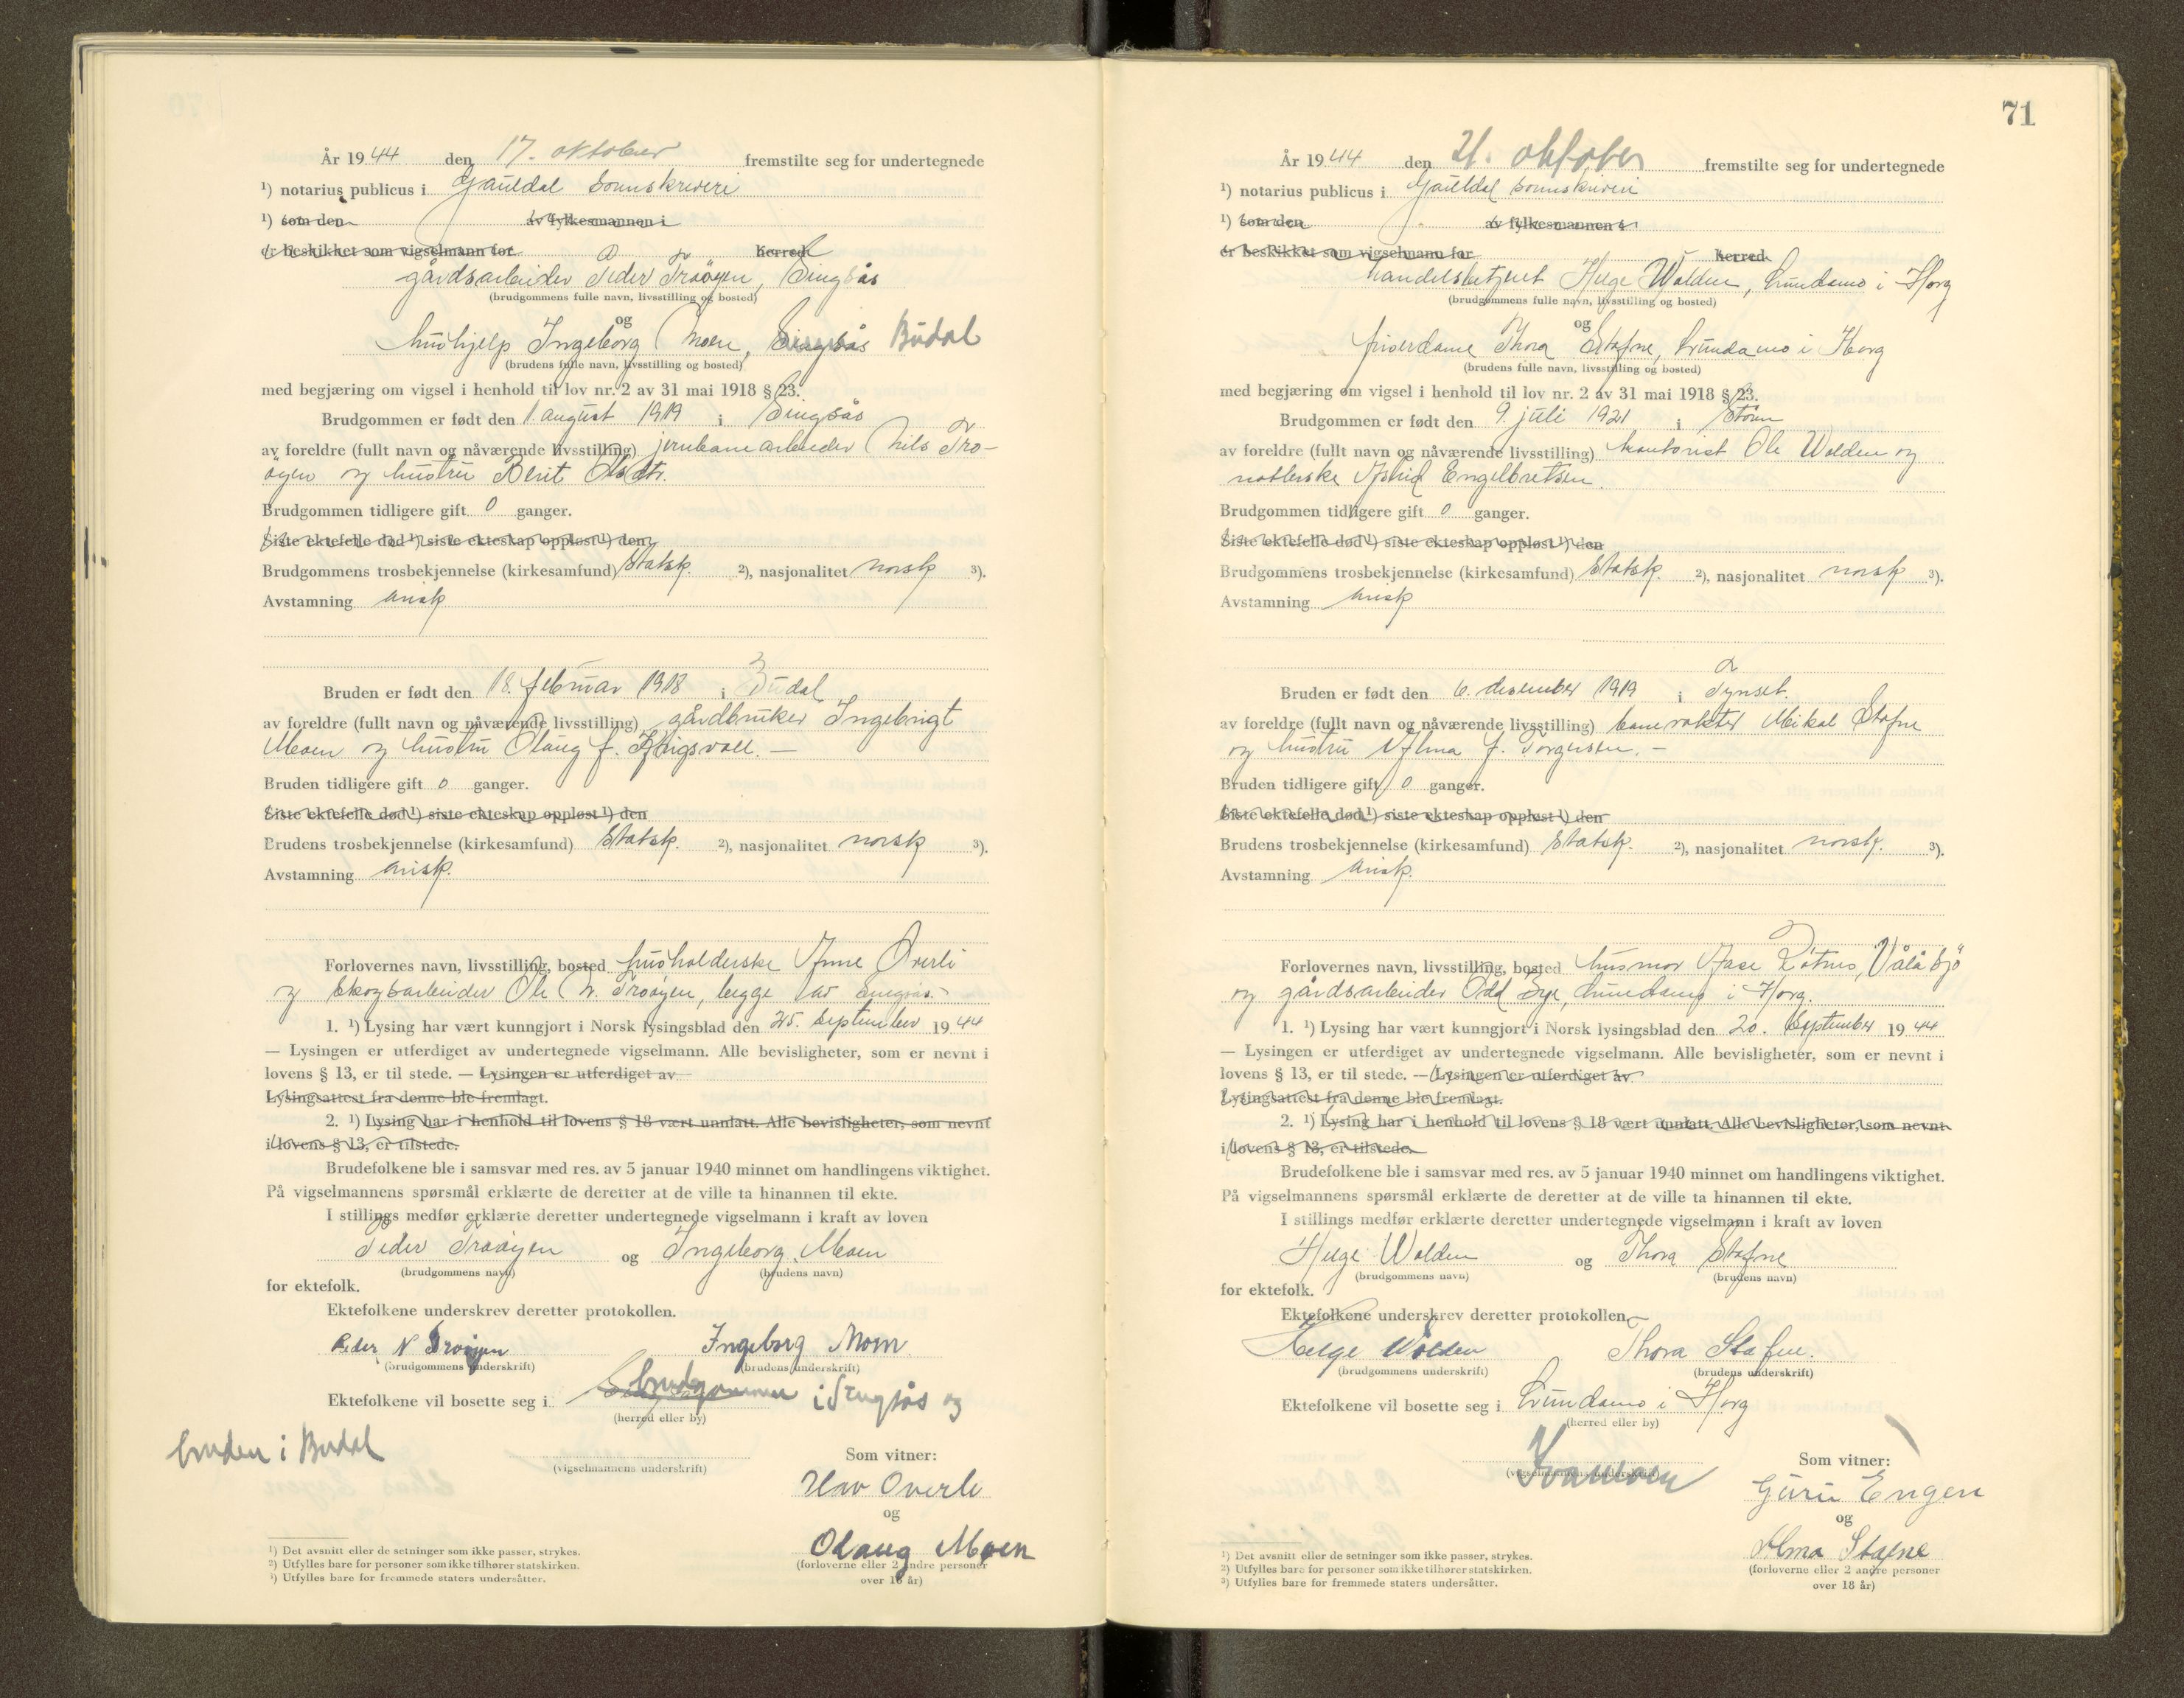 År 1944 den 17. oktober fremstilte seg for undertegnede
1) notarius publicus i Gauldal sorenskriveri
1) som den av fylkesmannen i
er beskikket som vigselmann for herred
gårdsarbeider Peder Troøyen, Singsås
(brudgommens fulle navn, livsstilling og bosted)
og
hushjelp Ingeborg Moen, Singsås Budal
(brudens fulle navn, livsstilling og bosted)
med begjæring om vigsel i henhold til lov nr. 2 av 31 mai 1918 § 23.
Brudgommen er født den 1. august 1919 i Singsås
av foreldre (fullt navn og nåværende livsstilling) jernbanearbeider Nils Tro-
øyen og hustru Berit Olsdtr.
Brudgommen tidligere gift 0 ganger.
Siste ektefelle død 1) siste ekteskap oppløst 1) den
Brudgommens trosbekjennelse (kirkesamfund) Statsk. 2), nasjonalitet norsk 3).
Avstamning arisk
Bruden er født den 18. februar 1918 i Budal
av foreldre (fullt navn og nåværende livsstilling) gårdbruker Ingebrigt
Moen og hustru Olaug f.
Bruden tidligere gift 0 ganger.
Siste ektefelle død 1) siste ekteskap oppløst 1) den
Brudens trosbekjennelse (kirkesamfund) Statsk. 2), nasjonalitet norsk 3).
Avstamning arisk.
Forlovernes navn, livsstilling, bosted husholderske Anne Øverli
og skogsarbeider Ole N. Troøyen, begge av Singsås.
1. 1) Lysing har vært kunngjort i Norsk lysingsblad den 25. september 1944
— Lysingen er utferdiget av undertegnede vigselmann. Alle bevisligheter, som er nevnt i
lovens § 13, er til stede. — Lysingen er utferdiget av
Lysingsattest fra denne ble fremlagt.
2. 1) Lysing har i henhold til lovens § 18 vært unnlatt. Alle bevisligheter, som nevnt
i lovens § 13, er tilstede.
Brudefolkene ble i samsvar med res. av 5 januar 1940 minnet om handlingens viktighet.
På vigselmannens spørsmål erklærte de deretter at de ville ta hinannen til ekte.
I stillings medfør erklærte deretter undertegnede vigselmann i kraft av loven
Peder Troøyen og Ingeborg Moen
(brudgommens navn) (brudens navn)
for ektefolk.
Ektefolkene underskrev deretter protokollen.
Peder N Troøyen Ingeborg Moen
(brudgommens underskrift) (brudens underskrift)
Ektefolkene vil bosette seg i brudgommen i Singsås og
(herred eller by)
bruden i Budal
(vigselmannens underskrift)
Som vitner:
Øverli
og
Olaug Moen
(forloverne eller 2 andre personer
over 18 år)
1) Det avsnitt eller de setninger som ikke passer, strykes.
2) Utfylles bare for personer som ikke tilhører statskirken.
3) Utfylles bare for fremmede staters undersåtter.
71
År 1944 den 21. oktober fremstilte seg for undertegnede
1) notarius publicus i Gauldal sorenskriveri
1) som den av fylkesmannen i
er beskikket som vigselmann for herred
handelsbetjent Helge Wolden, Lundamo i Horg
(brudgommens fulle navn, livsstilling og bosted)
og
friserdame Thora Stafne, Lundamo i Horg
(brudens fulle navn, livsstilling og bosted)
med begjæring om vigsel i henhold til lov nr. 2 av 31 mai 1918 § 23.
Brudgommen er født den 9. juli 1921 i Støren
av foreldre (fullt navn og nåværende livsstilling) kontorist Ole Wolden og
Engelbretsen.
Brudgommen tidligere gift 0 ganger.
Siste ektefelle død 1) siste ekteskap oppløst 1) den
Brudgommens trosbekjennelse (kirkesamfund) Statsk. 2), nasjonalitet norsk 3).
Avstamning arisk
Bruden er født den 6. desember 1919 i Tynset.
av foreldre (fullt navn og nåværende livsstilling) banevokter Mikal Stafne
og hustru Alma f. Torgersen.
Bruden tidligere gift 0 ganger.
Siste ektefelle død 1) siste ekteskap oppløst 1) den
Brudens trosbekjennelse (kirkesamfund) Statsk. 2), nasjonalitet norsk. 3).
Avstamning arisk.
Forlovernes navn, livsstilling, bosted husmor Aase
og gårdsarbeider Odd Lundamo i Horg.
1. 1) Lysing har vært kunngjort i Norsk lysingsblad den 20. September 1944
— Lysingen er utferdiget av undertegnede vigselmann. Alle bevisligheter, som er nevnt i
lovens § 13, er til stede. — Lysingen er utferdiget av
Lysingsattest fra denne ble fremlagt.
2. 1) Lysing har i henhold til lovens § 18 vært unnlatt. Alle bevisligheter, som nevnt
i lovens § 13, er tilstede.
Brudefolkene ble i samsvar med res. av 5 januar 1940 minnet om handlingens viktighet.
På vigselmannens spørsmål erklærte de deretter at de ville ta hinannen til ekte.
I stillings medfør erklærte deretter undertegnede vigselmann i kraft av loven
Helge Wolden og Thora Stafne
(brudgommens navn) (brudens navn)
for ektefolk.
Ektefolkene underskrev deretter protokollen.
Helge Wolden Thora Stafne.
(brudgommens underskrift) (brudens underskrift)
Ektefolkene vil bosette seg i Lundamo i Horg
(herred eller by)
(vigselmannens underskrift)
Som vitner:
Guru Engen
og
Alma Stafne
(forloverne eller 2 andre personer
over 18 år)
1) Det avsnitt eller de setninger som ikke passer, strykes.
2) Utfylles bare for personer som ikke tilhører statskirken.
3) Utfylles bare for fremmede staters undersåtter.